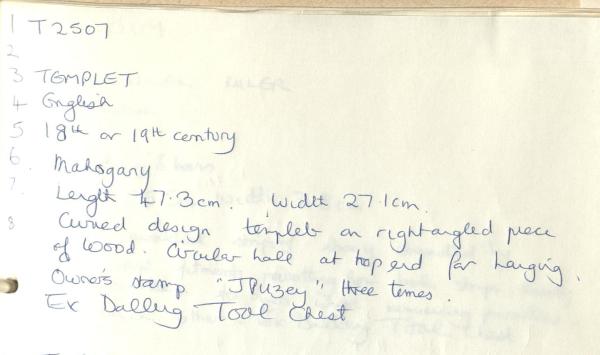 1 T2507
2
3 TEMPLET
4 English
5 18th or 19th century
6. Mahogany
7. Length 47.3cm. Width 27.1cm.
8 Curved design templet on rightangled piece
of wood. Circular hole at top end for hanging.
Owner's stamp "J PUZEY" three times.
Ex Dalling Tool Chest